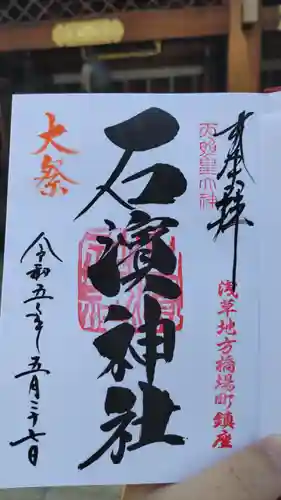 奉拝
天照皇大神
浅草地方橋場町鎮座
石濱神社
大祭
令和五年五月二十七日